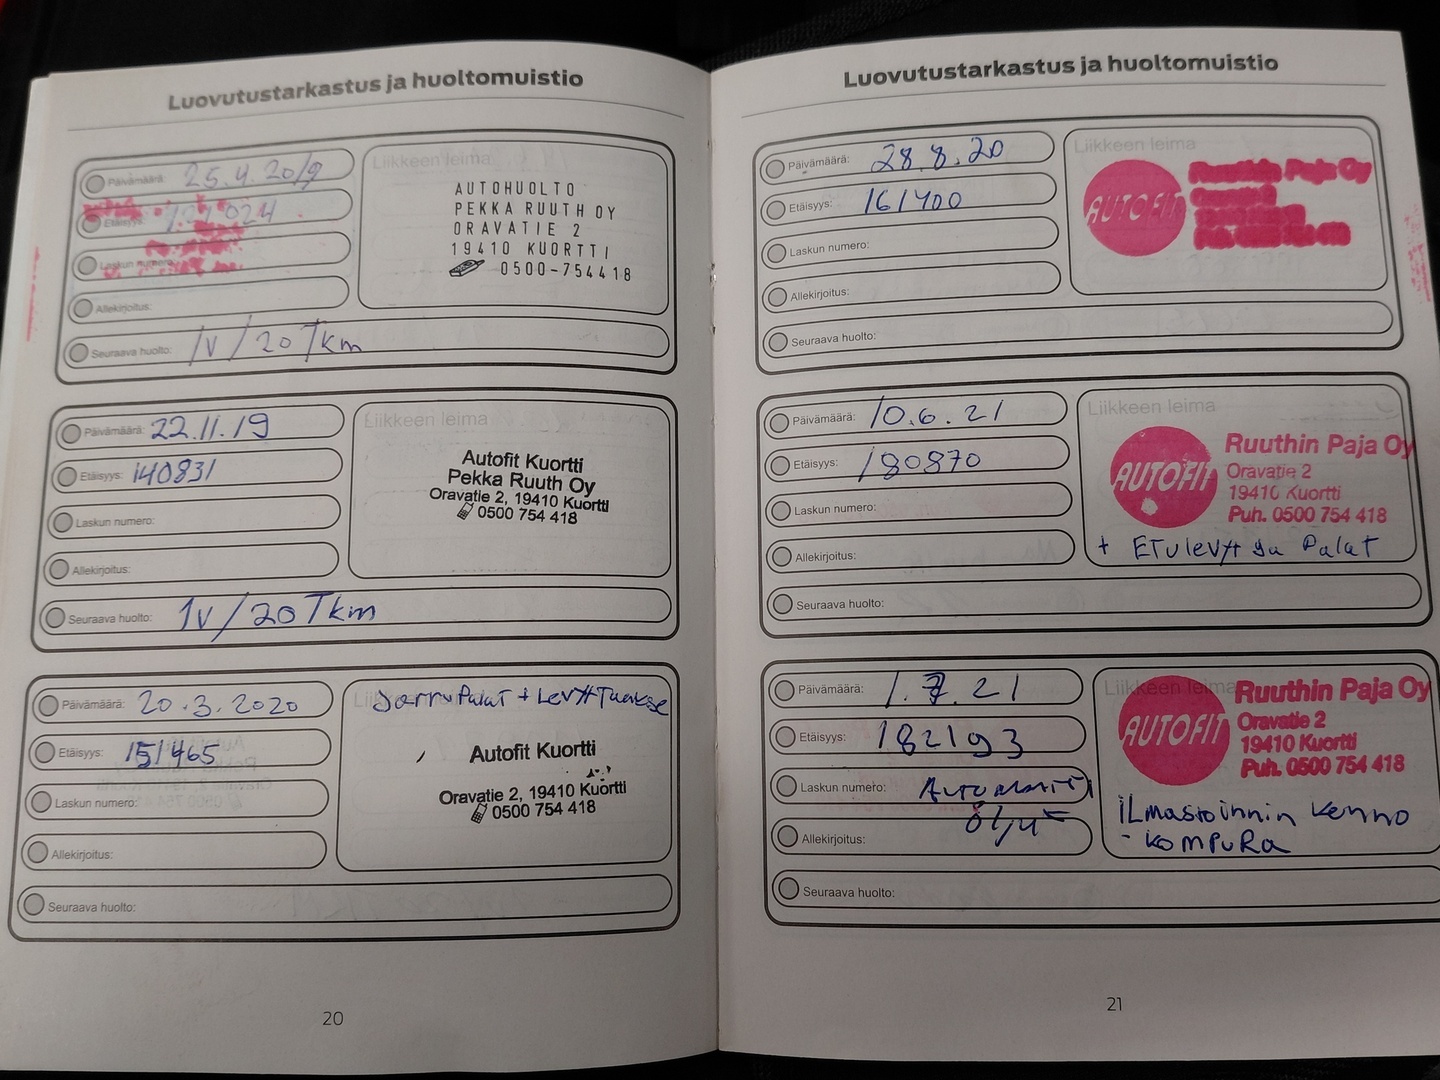 Luovutustarkastus ja huoltomuistio
Päivämäärä: 25.4.2019
Liikkeen leima
Etäisyys:
Laskun numero:
Allekirjoitus:
Seuraava huolto: 1V/20 Tkm
AUTOHUOLTO
PEKKA RUUTH OY
ORAVATIE 2
19410 KUORTTI
0500-754418
Päivämäärä: 22.11.19
Liikkeen leima
Etäisyys: 140831
Laskun numero:
Allekirjoitus:
Seuraava huolto: 1V/20 Tkm
Autofit Kuortti
Pekka Ruuth Oy
Oravatie 2, 19410 Kuortti
0500 754 418
Päivämäärä: 20.3.2020
Etäisyys: 151465
Laskun numero:
Allekirjoitus:
Seuraava huolto:
JarruPalat + Levyt Taakse
Autofit Kuortti
Oravatie 2, 19410 Kuortti
0500 754 418
20
Luovutustarkastus ja huoltomuistio
Päivämäärä: 28.8.20
Liikkeen leima
Etäisyys: 161400
Laskun numero:
Allekirjoitus:
Seuraava huolto:
AUTOFIT
Ruuthin Paja Oy
Päivämäärä: 10.6.21
Liikkeen leima
Etäisyys: 180870
Laskun numero:
Allekirjoitus:
Seuraava huolto:
AUTOFIT
Ruuthin Paja Oy
Oravatie 2
19410 Kuortti
Puh. 0500 754 418
+ ETulevyt Ja Palat
Päivämäärä: 1.7.21
Liikkeen leima
Etäisyys: 182193
Laskun numero: Automaatti
öljyt
Allekirjoitus:
Seuraava huolto:
AUTOFIT
Ruuthin Paja Oy
Oravatie 2
19410 Kuortti
Puh. 0500 754 418
ILmastoinnin kenno
- KOMPURa
21